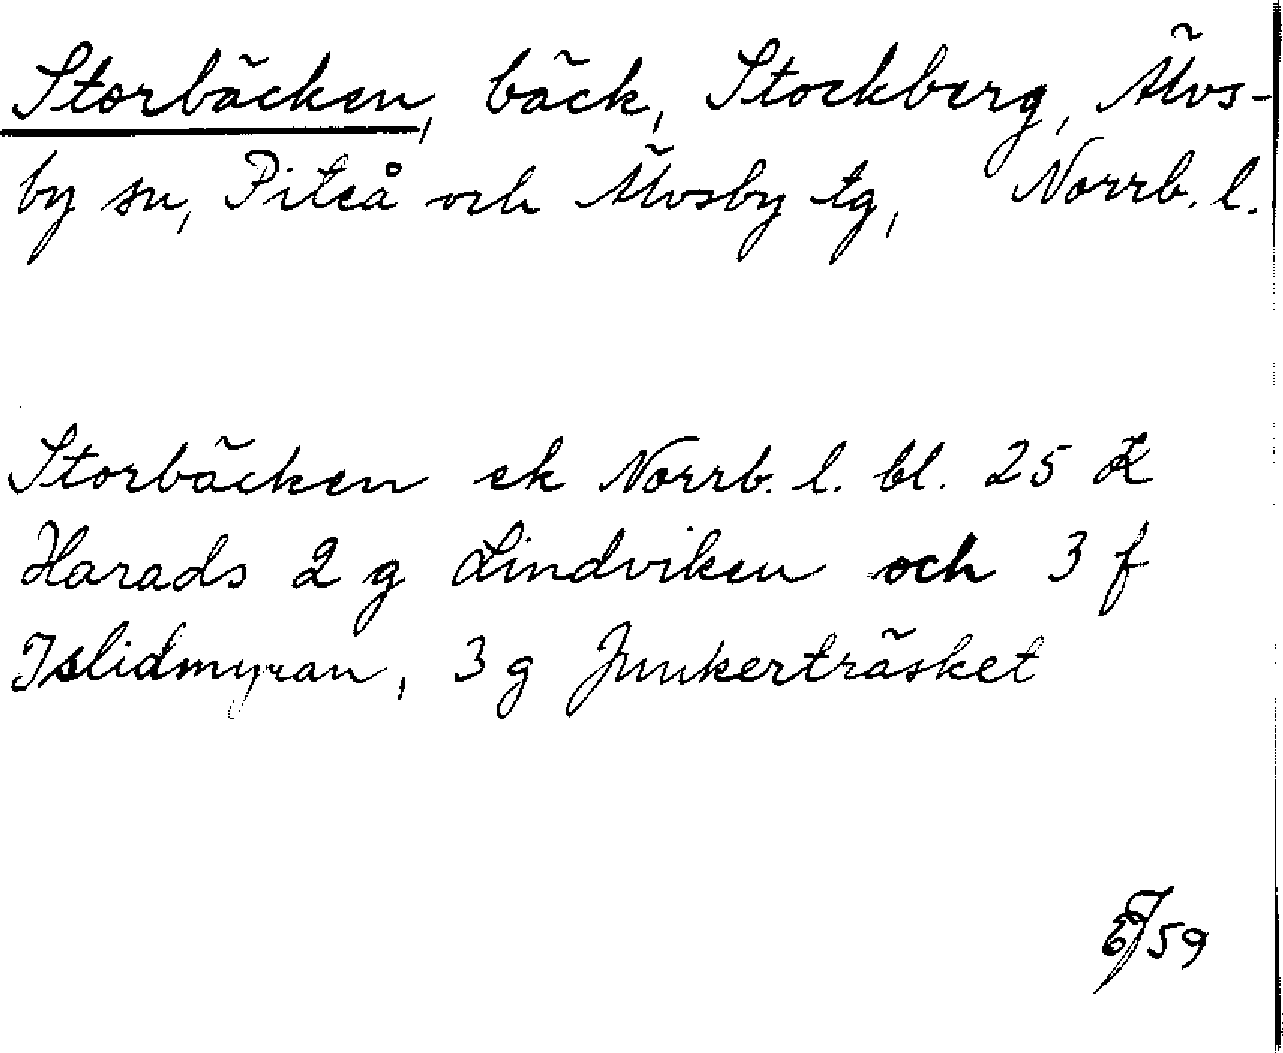 Storbäcken, bäck, Stockberg, Älvs-
by sn, Piteå och Älvsby tg, Norrb. l.
Storbäcken ek Norrb. l. bl. 25 K
Harads 2 g Lindviken och 3 f
Islidmyran, 3 g Junkerträsket
59